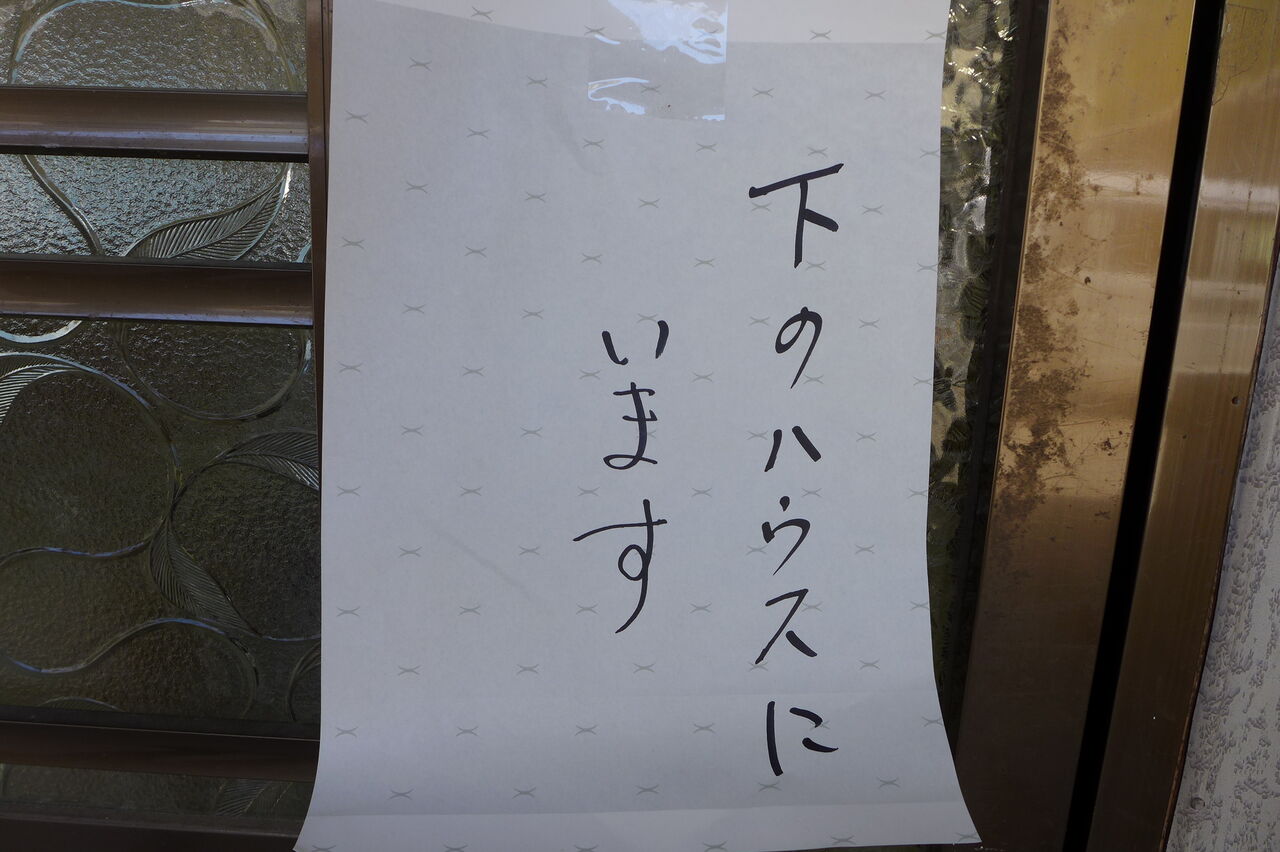 下のハウスに
います